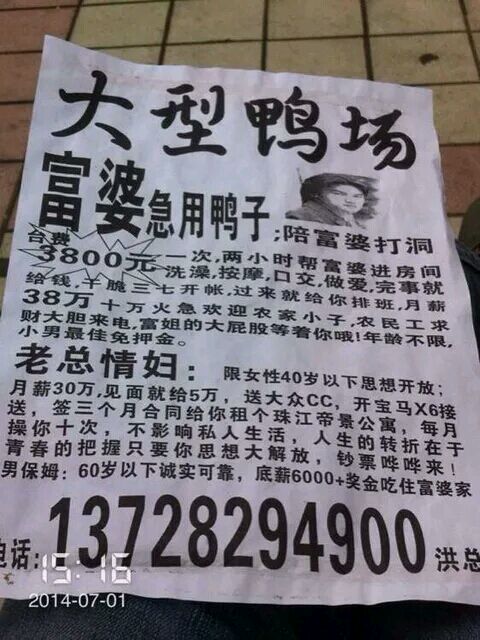 大型鸭场
富婆急用鸭子;陪富婆打洞
台费
3800元一次,两小时帮富婆进房间
洗澡,按摩,口交,做爱,完事就
给钱,干脆三七开帐,过来就给你排班,月薪
38万十万火急欢迎农家小子,农民工求
财大胆来电,富姐的大屁股等着你哦!年龄不限,
小男最佳免押金。
老总情妇:限女性40岁以下思想开放;
月薪30万,见面就给5万,送大众CC,开宝马X6接
送,签三个月合同给你租个珠江帝景公寓,每月
操你十次,不影响私人生活,人生的转折在于
青春的把握只要你思想大解放,钞票哗哗来!
男保姆:60岁以下诚实可靠,底薪6000+奖金吃住富婆家
电话:13728294900洪总
15:16
2014-07-01